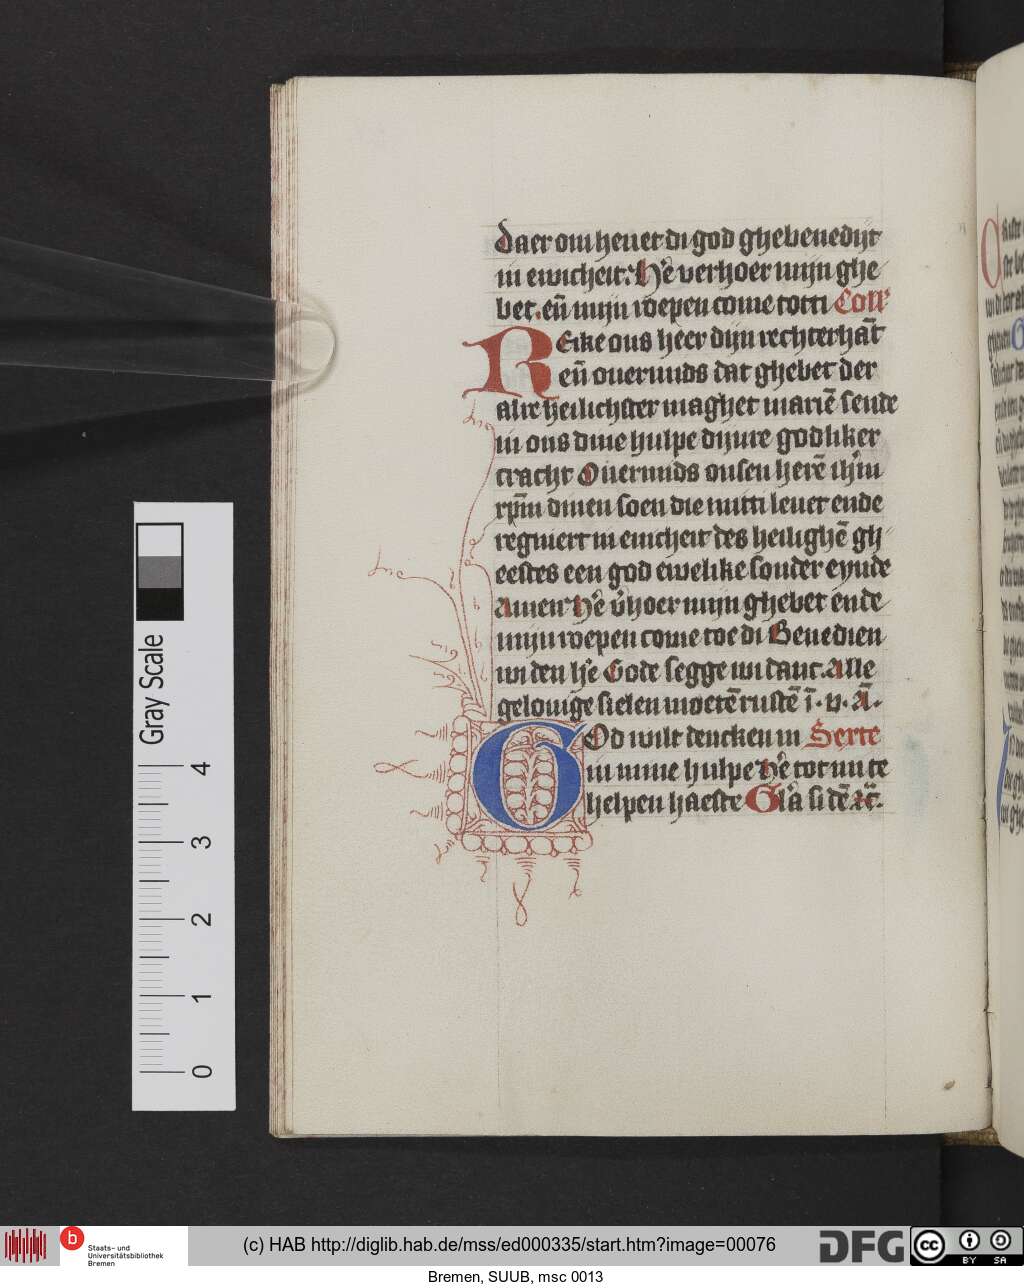 daer om heuet di god ghebenedijt
in ewicheit: He verhoer mijn ghe
bet. eñ mijn roepen come totti Coll'
REike ons heer dijn rechterhāt
eñ ouermids dat ghebet der
alre heilichster maghet mariē sende
in ons dine hulpe dijnre godliker
cracht Ouermids onsen herē ihm
xpm dinen soen die mitti leuet ende
regniert in enicheit des heilighē gh
eestes een god ewelike sonder eynde
Amen He v̄hoer mijn ghebet ende
mijn roepen come toe di Benedien
wi den he Gode segge wi danc. Alle
gelouige sielen moetē rustē ī. v. A.
GOd wilt dencken in Serte
in mine hulpe he tot mi te
helpen haeste Gla si dē ec.
Gray Scale
4
3
2
1
0
b
Staats- und
Universitätsbibliothek
Bremen
(c) HAB http://diglib.hab.de/mss/ed000335/start.htm?image=00076
DFG
cc
BY SA
Bremen, SUUB, msc 0013